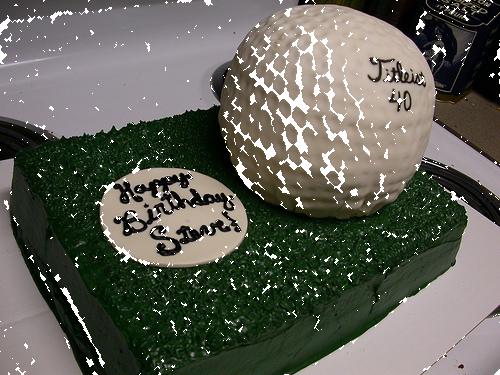 Titleist
40
Happy
Birthday
Steve!